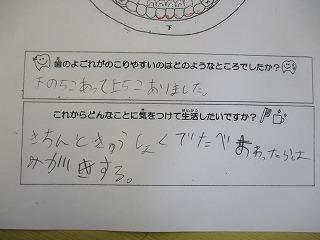 下
歯のよごれがのこりやすいのはどのようなところでしたか?
下のちこあって上ちこありました。
これからどんなことに気をつけて生活したいですか?
きちんときゅうしょくでたべおわったらは
みがきする。